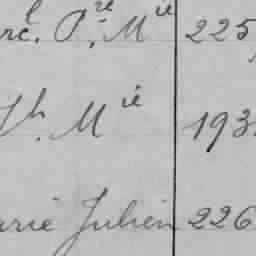 rcl. Pre. Mie 225
Jh. Mie 193
arie Julien 226